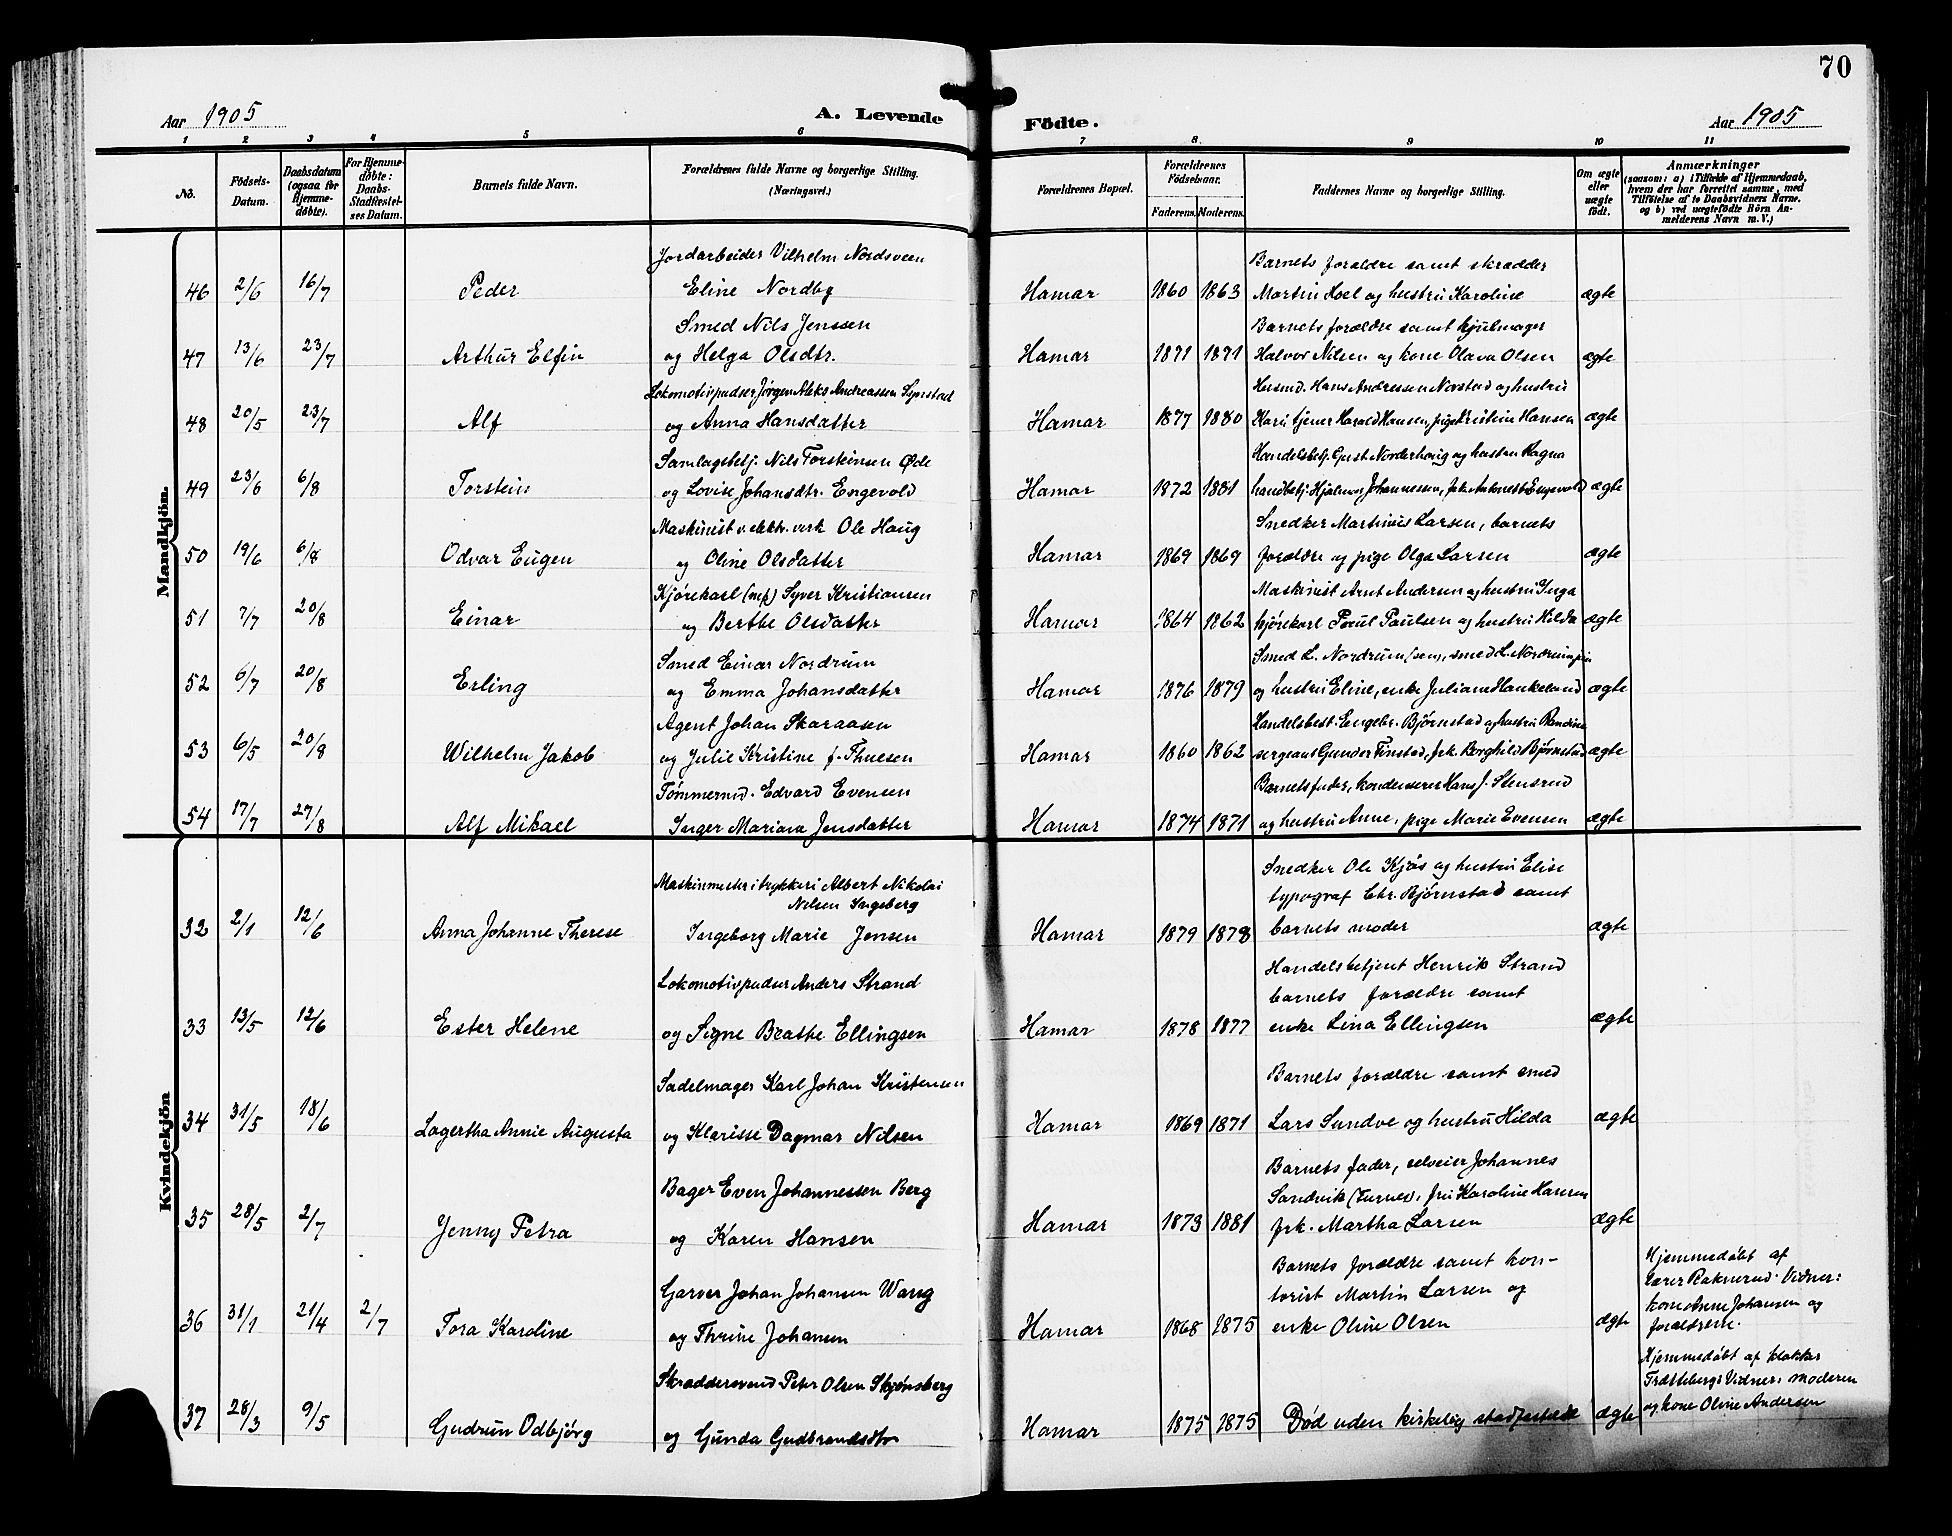 70
Aar 1905 A. Levende Födte. Aar 1905
1 2 3 4 5 6 7 8. 9 10 11
No. Födsels-Datum. Daabsdatum (ogsaa for Hjemme-døbte). For Hjemme-døbte: Daabs-Stadfæstel-ses Datum. Barnets fulde Navn. Forældrenes fulde Navne og borgerlige Stilling. (Næringsvei.) Forældrenes Bopæl. Forældrenes Födselsaar. Faderens. Moderens. Faddernes Navne og borgerlige Stilling. Om ægte eller uægte født. Anmærkninger (saasom: a) i Tilfælde af Hjemmedaab, hvem der har forrettet samme, med Tilföielse af to Daabsvidners Navne. og b) ved uægtefödte Börn An-melderens Navn m. V.)
Mandkjön.
Jordarbeider Vilhelm Nordsveen Barnets forældre samt skrædder
46 2/6 16/7 Peder Eline Nordby Hamar 1860 1863 Martin Hoel og hustru Karoline ægte
Smed Nils Jenssen Barnets forældre samt hjulmager
47 13/6 23/7 Arthur Elfin og Helga Olsdtr. Hamar 1871 1871 Halvor Nilsen og kone Olava Olsen ægte
Lokomotivpudser Jørgen Aleks Andreassen Synstad Husmd. Hans Andressen Norstad og hustru
48 20/5 23/7 Alf og Anna Hansdatter Hamar 1877 1880 Kari tjener Harald Hansen, pige Kristine Hansen ægte
Samlagsbetj. Nils Torsteinsen Øde Handelsbetj. Gust Norderhaug og hustru Ragna
49 23/6 6/8 Torstein og Lovise Johansdtr. Engevold Hamar 1872 1881 handbetj. Hjalmar Johannessen, frk. Antonette Engevold ægte
Maskinist v. elektr. verk Ole Haug Snedker Martinius Larsen, barnets
50 19/6 6/8 Odvar Eugen og Oline Olsdatter Hamar 1869 1869 forældre og pige Olga Larsen ægte
Kjørekarl Syver Kristiansen Maskinist Arnt Andersen og hustru Inga
51 7/7 20/8 Einar og Berthe Olsdatter Hamar 1864 1862 kjørekarl Paul Paulsen og hustru Hilda ægte
Smed Einar Nordrum Smed L. Nordrum (sen), smed L. Nordrum jun
52 6/7 20/8 Erling og Emma Johansdatter Hamar 1876 1879 og hustru Eline, enke Juliane Haukeland ægte
Agent Johan Skaraasen Handelsbest. Engebr. Bjørnstad og hustru Randine
53 6/5 20/8 Wilhelm Jakob og Julie Kristine f. Thuesen Hamar 1860 1862 sergeant Gunder Finstad, frk. Borghild Bjørnstad ægte
Tømmermd. Edvard Evensen Barnets fader, kondenserer Hans J. Stensrud
54 17/7 27/8 Alf Mikael Inger Mariara Jensdatter Hamar 1874 1871 og hustru Anne, pige Marie Evensen ægte
Kvindekjön
Maskinmester i trykkeri Albert Nikolai Snedker Ole Kjøs og hustru Elise
Nilsen Ingeberg typograf Chr. Bjørnstad samt
32 2/1 12/6 Anna Johanne Therese Ingeborg Marie Jensen Hamar 1879 1878 barnets moder ægte
Lokomotivpudser Anders Strand Handelsbetjent Henrik Strand
barnets forældre samt
33 13/5 12/6 Ester Helene og Signe Beathe Ellingsen Hamar 1878 1877 enke Lina Ellingsen ægte
Sadelmager Karl Johan Kristensen Barnets forældre samt smed
34 31/5 18/6 Lagertha Annie Augusta og Klarisse Dagmar Nilsen Hamar 1869 1871 Lars Sundve og hustru Hilda ægte
Bager Even Johannessen Berg Barnets fader, selveier Johannes
Sandvik (Furnes), fru Karoline Hansen
35 28/5 2/7 Jenny Petra og Karen Hansen Hamar 1873 1881 frk. Martha Larsen ægte
Garver Johan Johansen Wang Barnets forældre samt kon-
torist Martin Larsen og
36 31/1 21/4 2/7 Tora Karoline og Thrine Johansen Hamar 1868 1875 enke Oline Olsen ægte
Hjemmedøbt af
Lærer Raknerud. Vidner:
kone Anne Johansen og
forældrene.
Skræddersvend Peter Olsen Skjønsberg
37 28/3 9/5 Gudrun Odbjørg og Gunda Gudbrandsdtr Hamar 1875 1875 Død uden kirkelig stadfæstelse ægte
Hjemmedøbt af klokker
Trætteberg. Vidner: moderen
og kone Oline Andersen